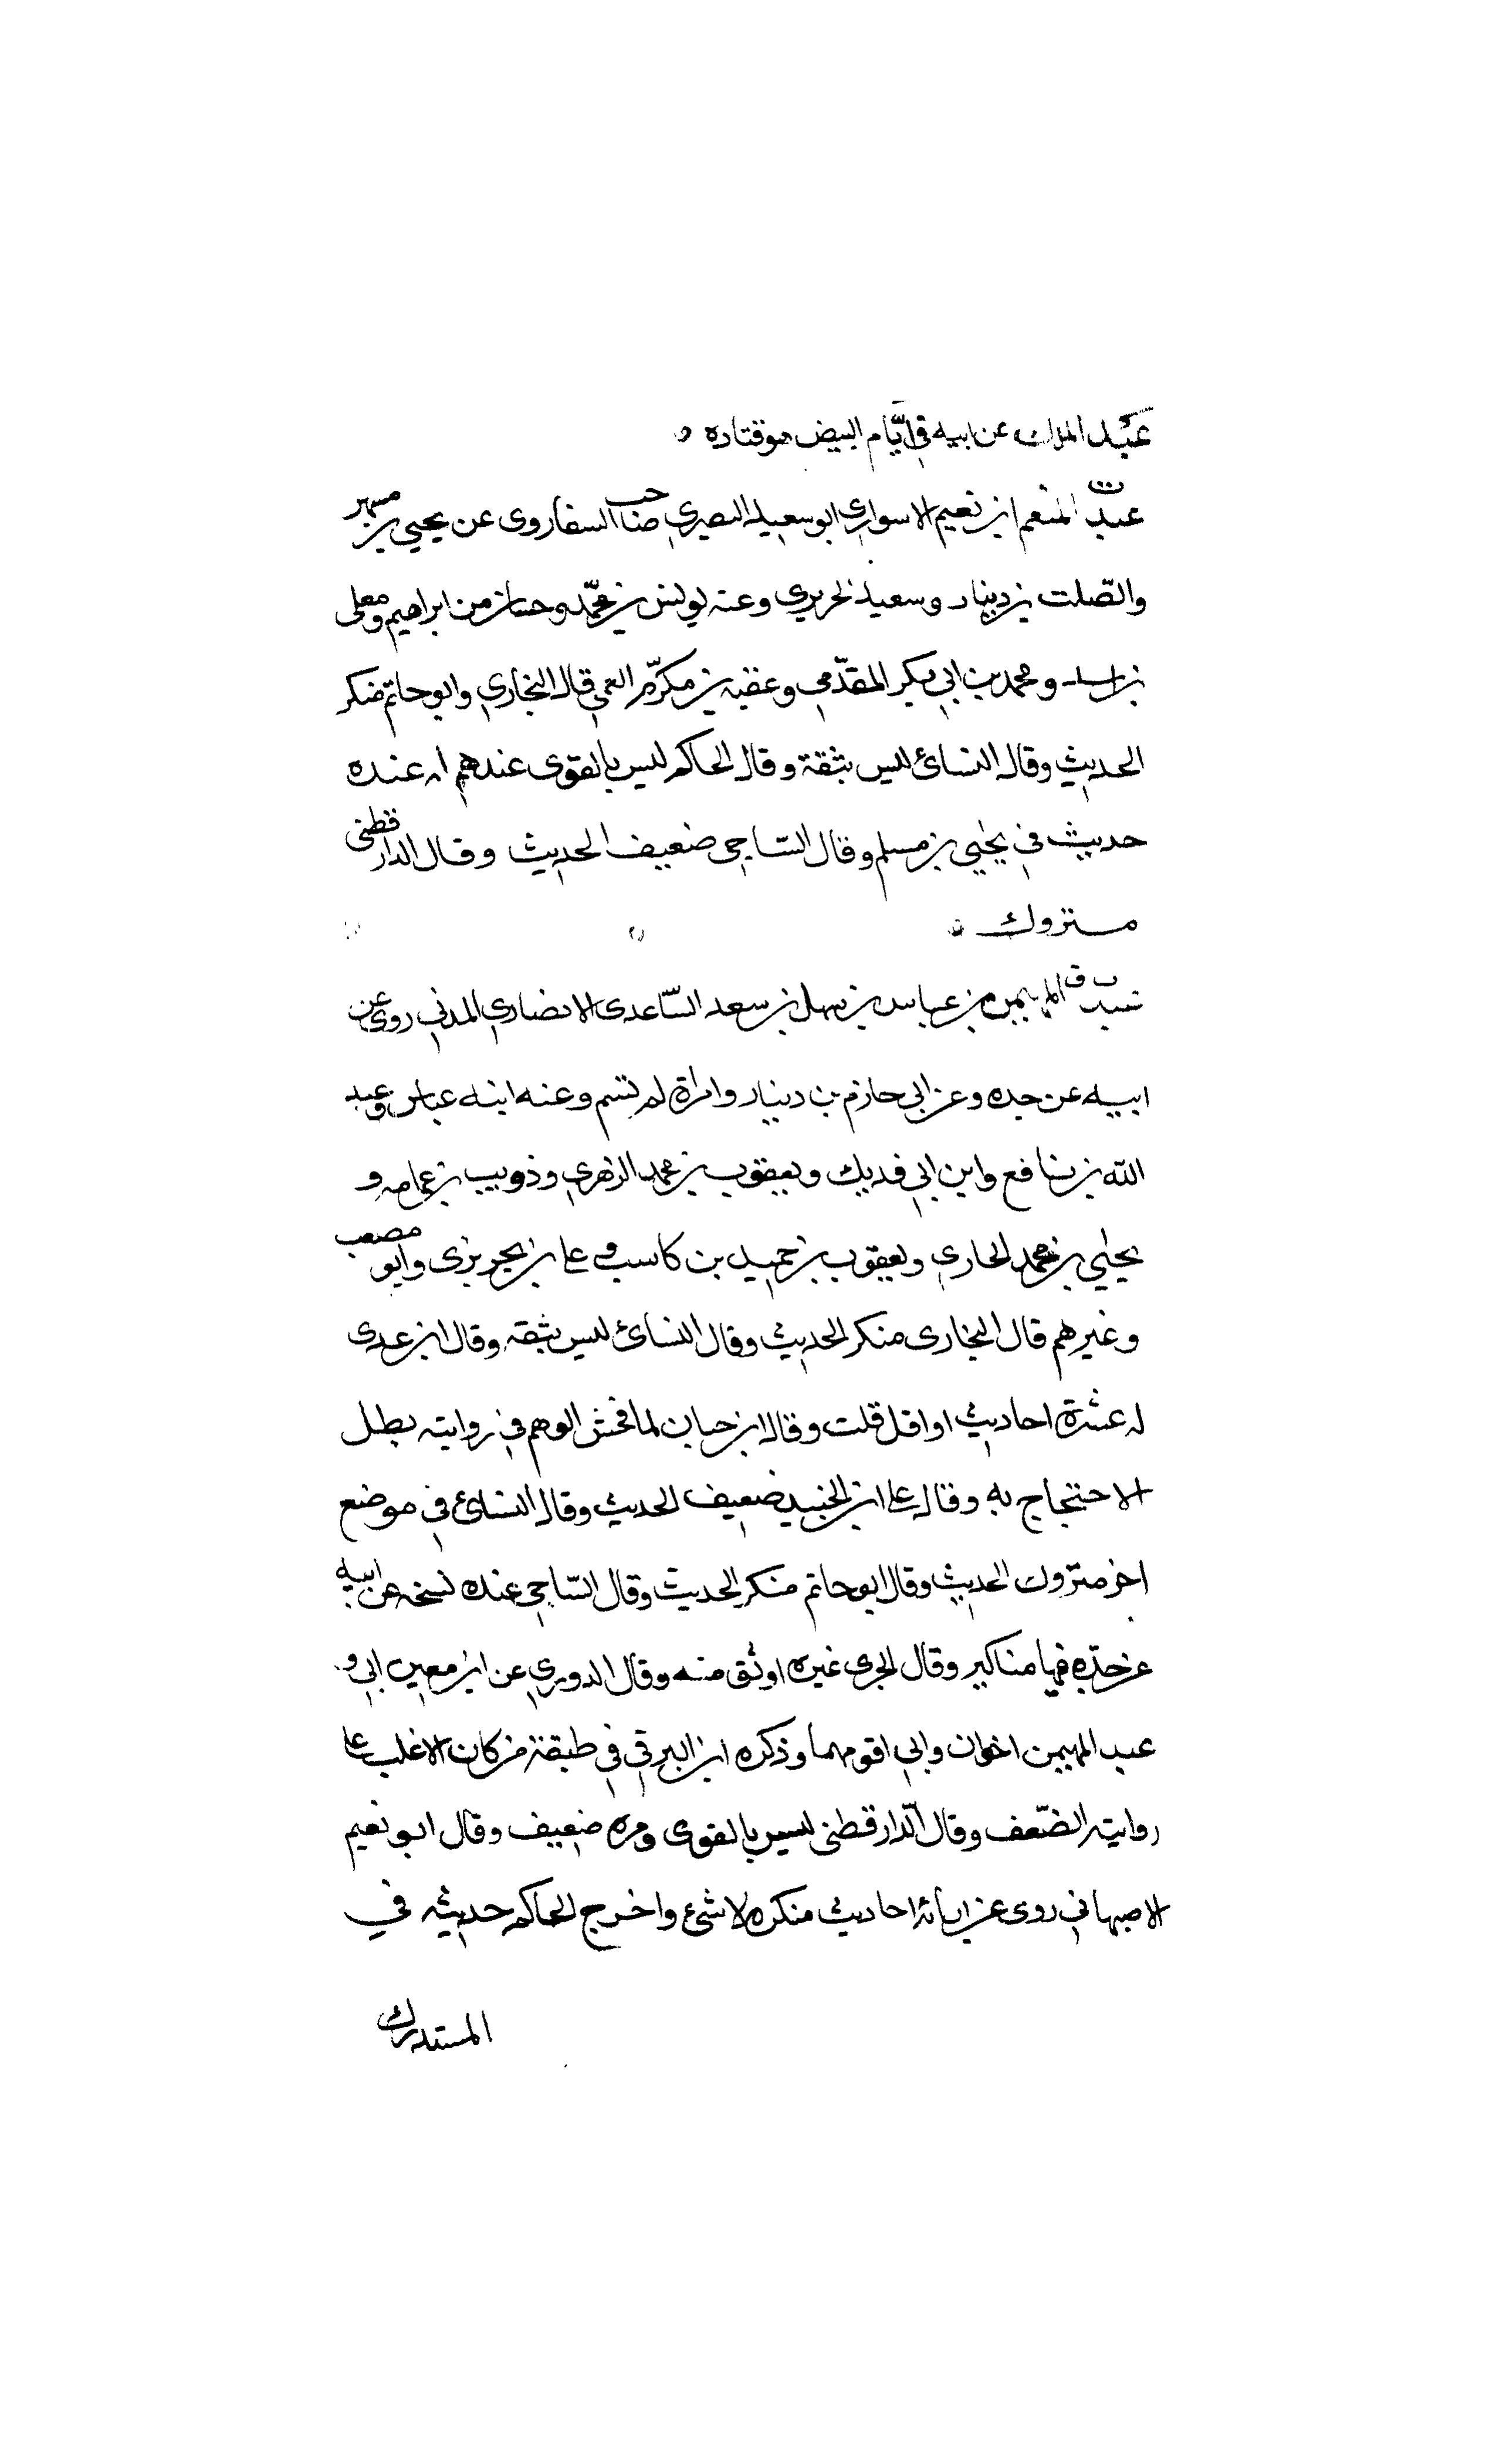 عبد الملك عن ابيه في ايّام البيض هو قتاده
ت
عبد المنعم ابن نعيم الاسواري ابو سعيد البصري صاحب السقا روى عن يحيى بن مسلم
والصّلت بن دينار وسعيد الجريري وعنه يونس بن محمّد وحسان بن ابراهيم ومعلى
بن اسد ومحمد بن ابي بكر المقدّمي وعقبه بن مكرّم العمي قال البخاري وابو حاتم منكر
الحديث وقال النسائ ليس بثقة وقال الحاكم ليس بالقوى عندهم عنده
حديث في يحيى بن مسلم وقال السّاجى ضعيف الحديث وقال الدارقطنى
متروك
ت ق
عبد المهيمن بن عباس بن سهل بن سعد السّاعدى الانصاري المدني روى عن
ابيه عن جده وعن ابي حازم بن دينار وامراة لم تسم وعنه ابنه عباس وعبد
الله بن نافع وابن ابي فديك ويعقوب بن محمد الزهري وذويب بن عمامه و
يحيى بن محمد الجاري ويعقوب بن حميد بن كاسب وعلى بن بحر بن برى وابو مصعب
وغيرهم قال البخارى منكر الحديث وقال النسائ ليس بثقه وقال ابن عدى
له عشرة احاديث او اقل قلت وقال ابن حبان لما فحش الوهم في روايته بطل
الاحتجاج به وقال على ابن الجنيد ضعيف الحديث وقال النسائ في موضع
اخر متروك الحديث وقال ابو حاتم منكر الحديث وقال السّاجى عنده نسخه عن ابيه
عن جدّه فيها مناكير وقال الحربى غيره اوثق منه وقال الدوري عن ابن معين ابي و
عبد المهيمن اخوان وابي اقومهما وذكره ابن البرقي في طبقة من كان الاغلب على
روايته الضّعف وقال الدّارقطنى ليس بالقوى ومره ضعيف وقال ابو نعيم
الاصبهاني روى عن ابائه احاديث منكره لا شئ واخرج الحاكم حديثه في
المستدرك